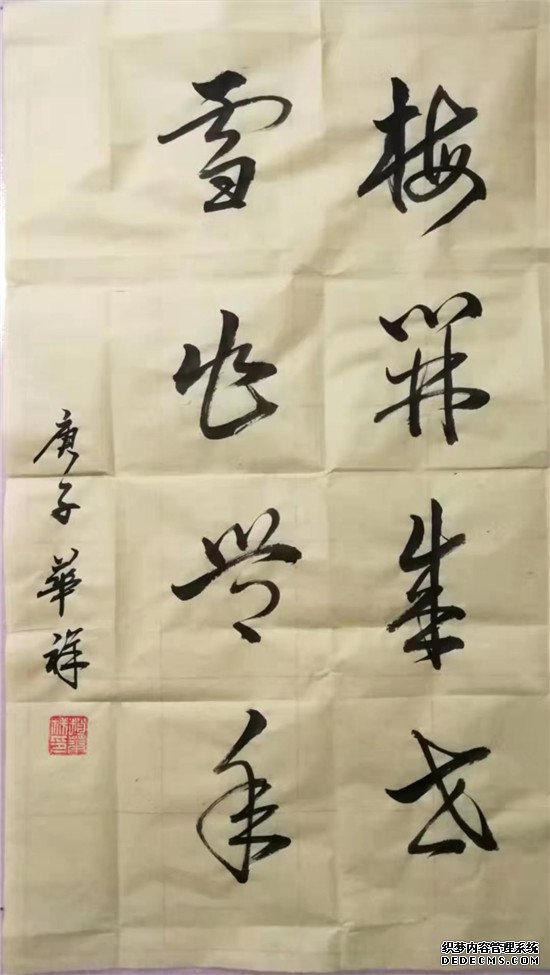 梅開盛世
雪兆豐年
庚子華祥
织梦内容管理系统
DEDECMS.COM